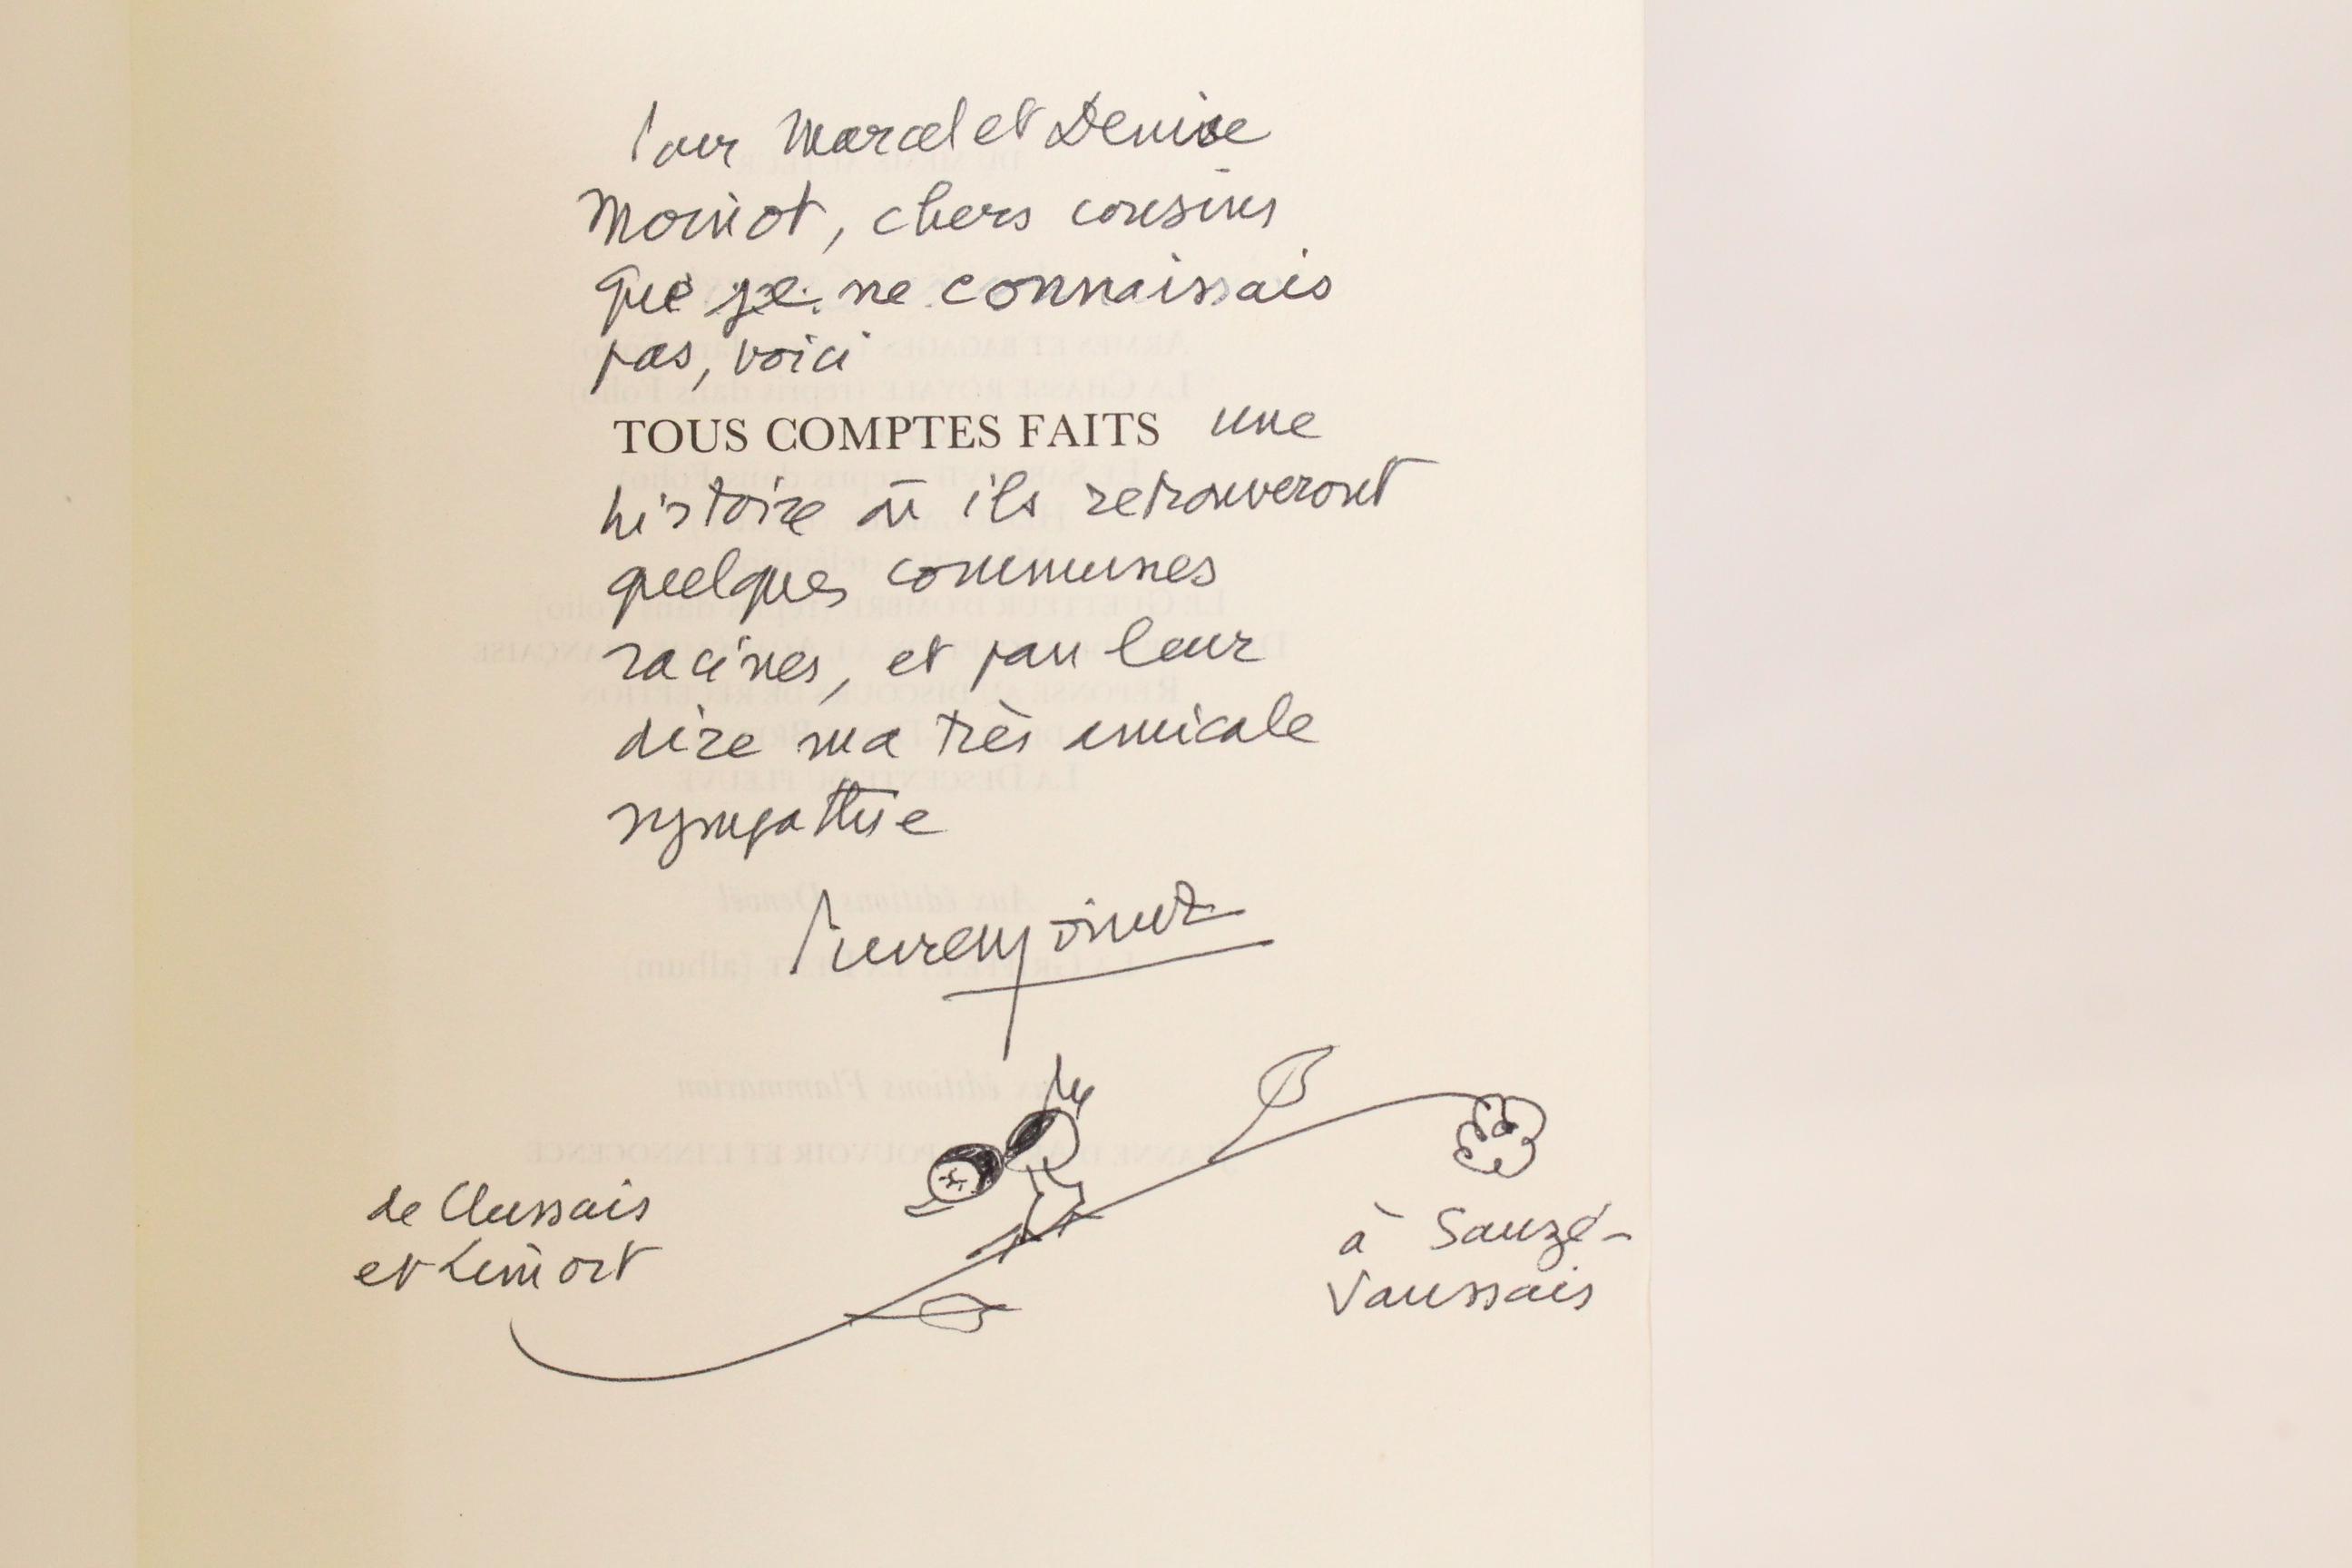 Pour Marcel et Denise
Moinot, chers cousins
que je ne connaissais
pas, voici
TOUS COMPTES FAITS une
histoire où ils retrouveront
quelques communes
racines, et pour leur
dire ma très amicale
sympathie
Pierre Moinot
de Clussais
et Limort
à Sauzé-
Vaussais